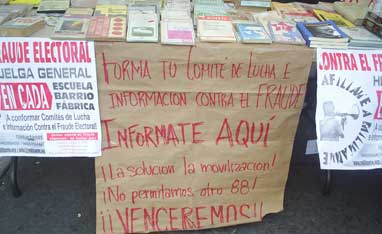 FRAUDE ELECTORAL
HUELGA GENERAL
EN CADA
ESCUELA
BARRIO
FÁBRICA
A conformar Comités de Lucha
e Información Contra el Fraude Electoral
FORMA TU COMITÉ DE LUCHA E
INFORMACIÓN CONTRA EL FRAUDE
INFORMATE AQUÍ
¡LA SOLUCIÓN LA MOVILIZACIÓN!
¡NO PERMITAMOS OTRO 88!
¡¡VENCEREMOS!!
CONTRA EL FRAU
AFILIATE A